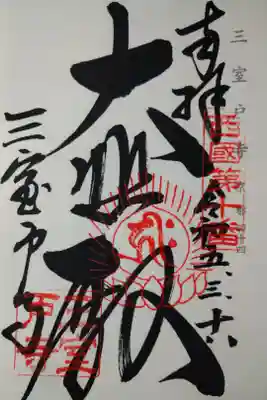 奉拝
三室戸寺
西國第十番
令和五、三、十六
大悲殿
三室戸寺
三室戸寺